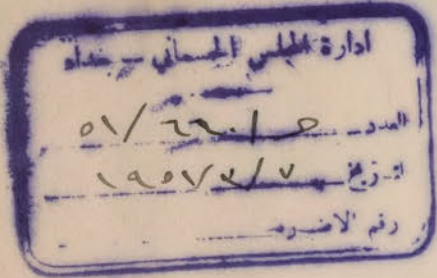 ادارة المجلس الجسماني – بغداد
العدد ص/٦٦٠/٥١
التاريخ ٧/٣/١٩٥١
رقم الاضبارة